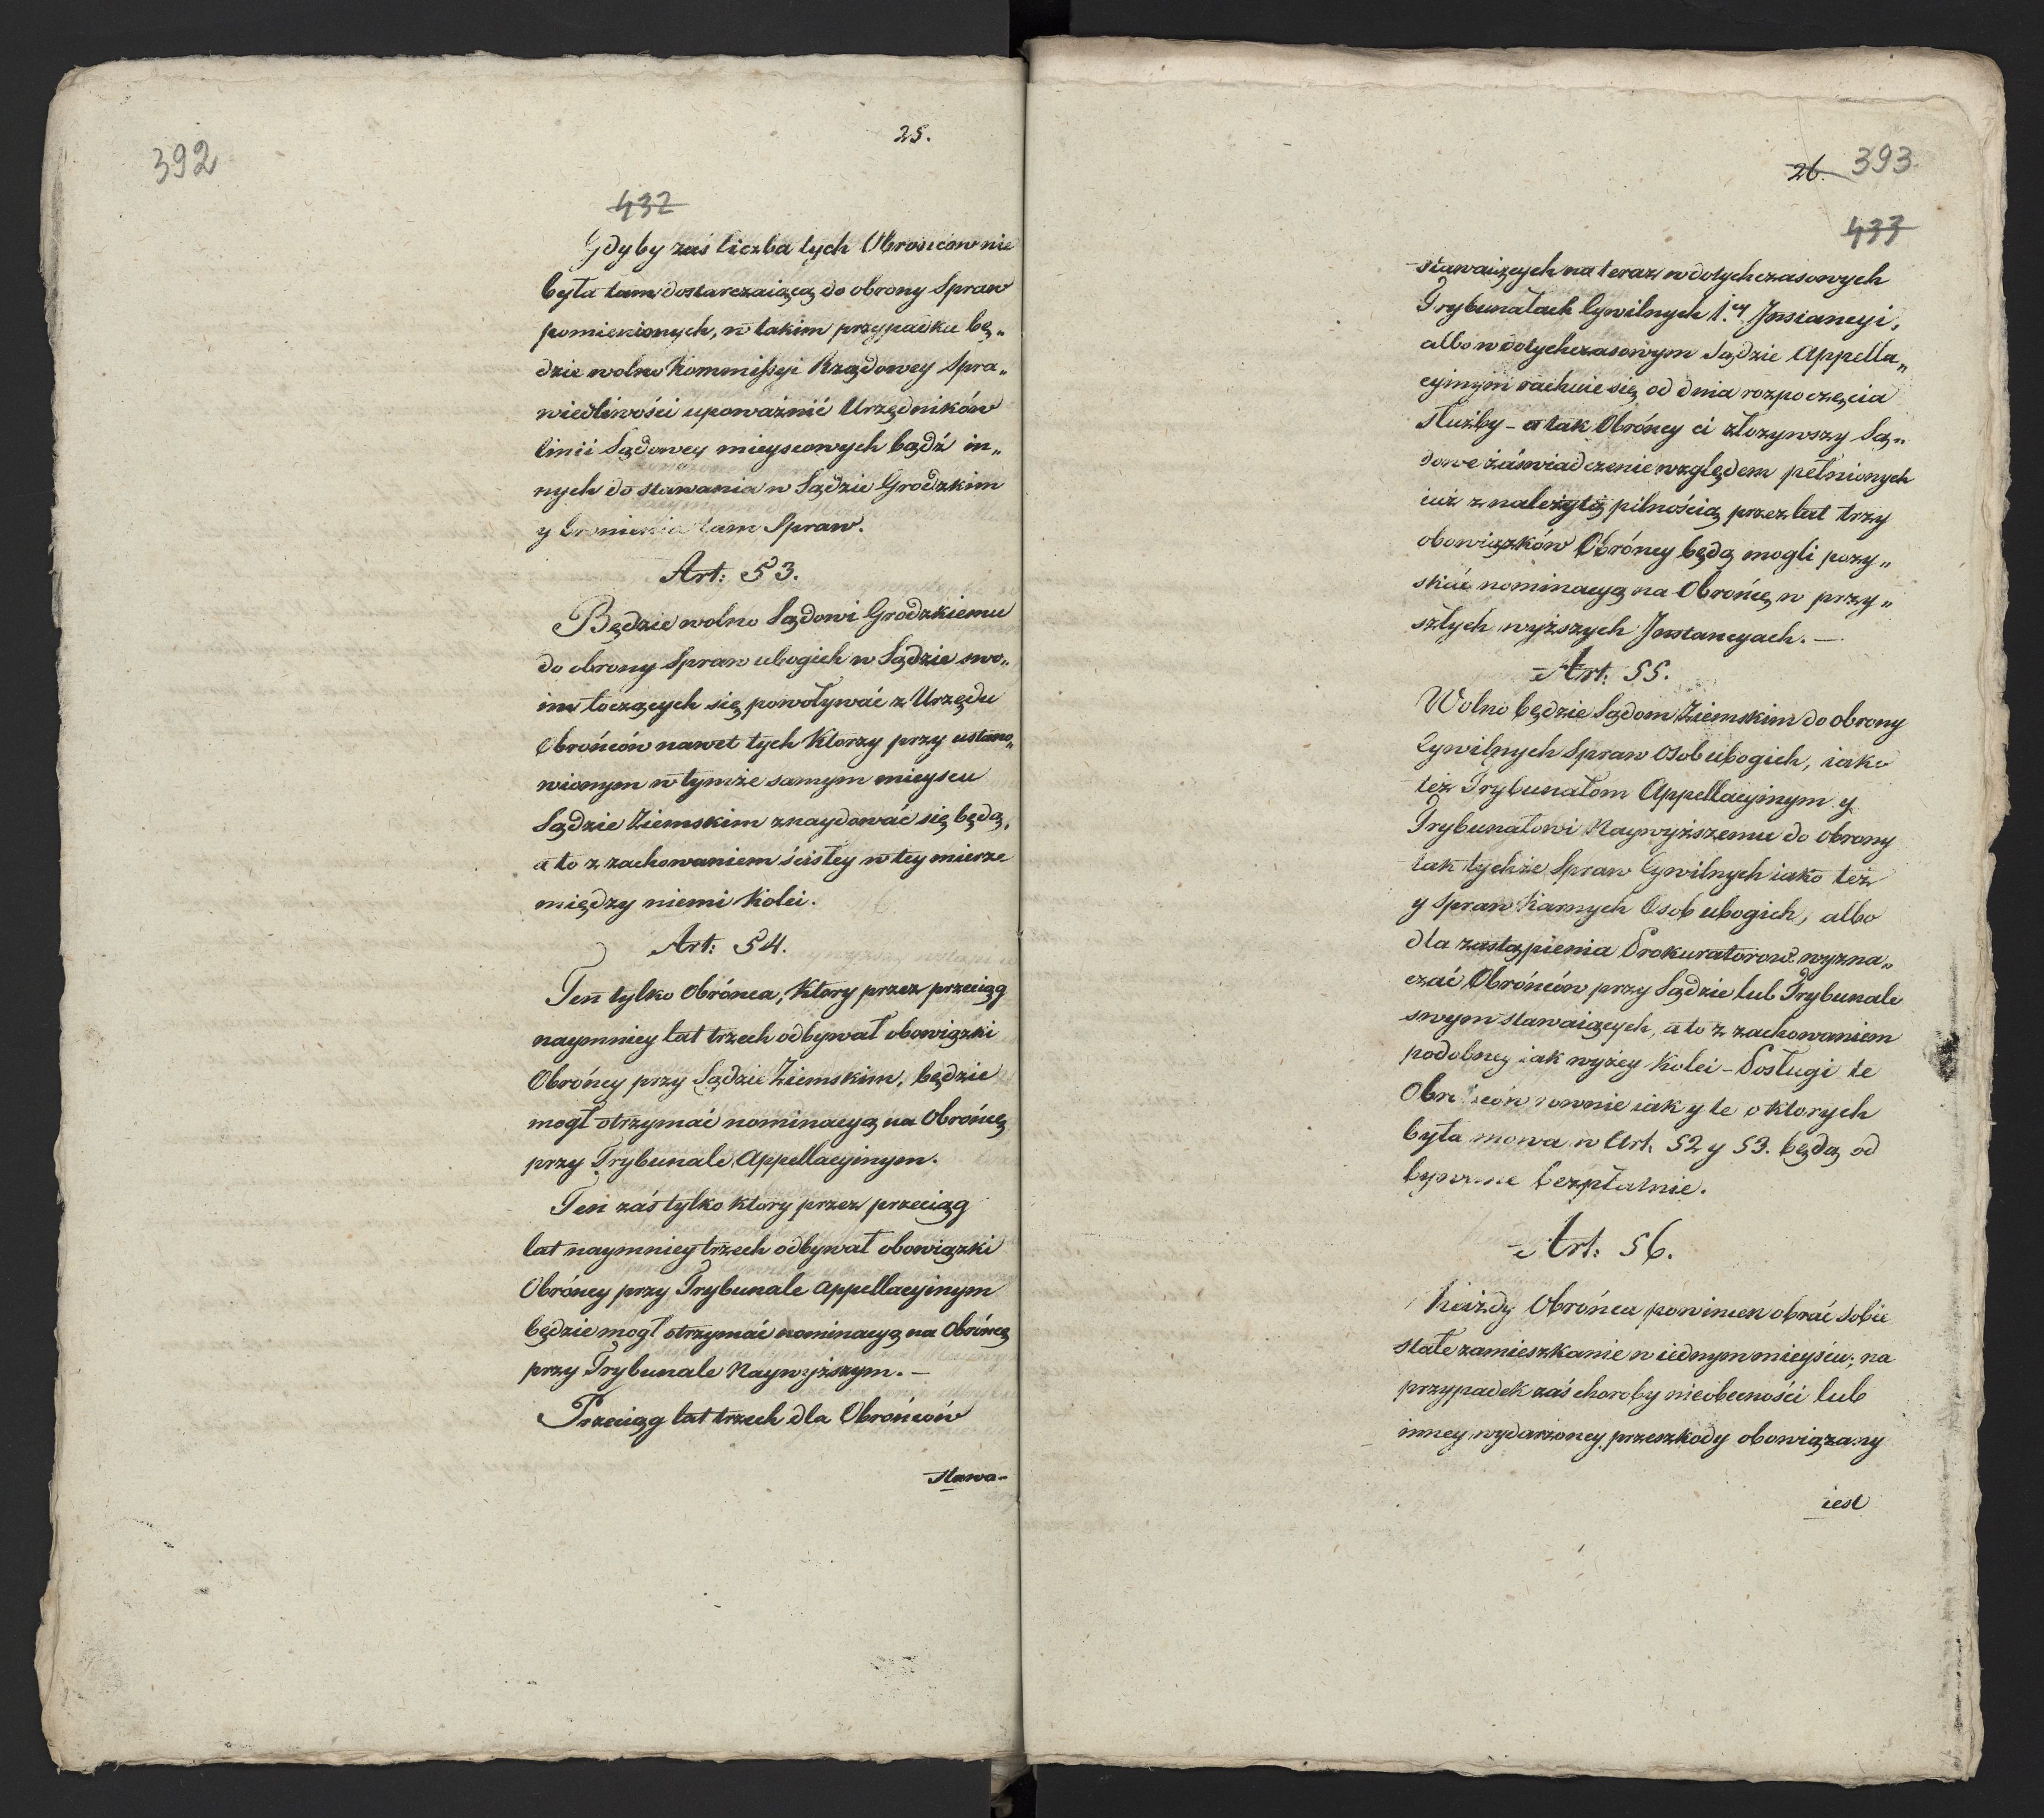 392
25.
432
Gdyby zaś liczba tych Obrońców nie
była tam dostarczaiącą do obrony Spraw
pomienionych, w takim przypadku bę„
dzie wolno Kommissyi Rządowey Spra„
wiedliwości upoważnić Urzędników
linii Sądowey mieyscowych bądź in„
nych do stawania w Sądzie Grodzkim
y bronienia tam Spraw.
Art: 53.
Będzie wolno Sądowi Grodzkiemu
do obrony Spraw ubogich w Sądzie swo„
im toczących się powoływać z Urzędu
Obrońców nawet tych Ktorzy przy ustano„
wionym w tymże samym mieyscu
Sądzie Ziemskim znaydować się będą,
a to z zachowaniem ścisłey w tey mierze
między niemi Kolei.
Art: 54.
Ten tylko Obrónca, Ktory przez przeciąg
naymniey lat trzech odbywał obowiązki
Obróncy przy Sądzie Ziemskim, będzie
mogł otrzymać nominacyą na Obrońcę
przy Trybunale Appellacyinym.
Ten zaś tylko ktory przez przeciąg
lat naymniey trzech odbywał obowiązki
Obróncy przy Trybunale Appellacyinym
będzie mogł otrzymać nominacyą na Obrońcę
przy Trybunale Naywyższym. –
Przeciąg lat trzech dla Obrońców
stawa-
26. 393
433
stawaiących na teraz w dotychczasowych
Trybunałach Cywilnych 1.ey Instancyi,
albo w dotychczasowym Sądzie Appella„
cyinym rachuie się od dnia rozpoczęcia
służby – a tak Obróncy ci złożywszy Są„
dowe zaświadczenie względem pełnionych
iuż z należytą pilnością przez lat trzy
obowiązków Obróncy będą mogli pozy„
skać nominacyą na Obrońcę w przy„
szłych wyższych Instancyach. –
Art: 55.
Wolno będzie Sądom Ziemskim do obrony
Cywilnych Spraw Osob ubogich, iako
też Trybunałom Appellacyinym y
Trybunałowi Naywyższemu do obrony
tak tychże Spraw Cywilnych iako też
y Spraw Karnych Osob ubogich, albo
dla zastąpienia Prokuratorow wyzna„
czać Obrońców przy Sądzie lub Trybunale
swym stawaiących, a to z zachowaniem
podobney iak wyżey Kolei – Posługi te
Obrońców rownie iak y te o ktorych
była mowa w Art. 52 y 53. będą od
bywane bezpłatnie.
Art: 56.
Każdy Obrónca powinien obrać sobie
stałe zamieszkanie w iednym mieyscu; na
przypadek zaś choroby nieobecności lub
inney wydarzoney przeszkody obowiązany
iest